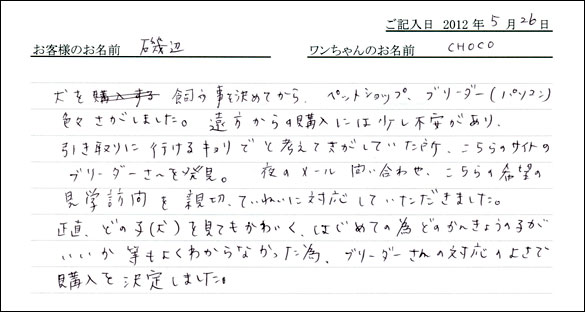 ご記入日 2012年 5月 26日
お客様のお名前 磯辺 ワンちゃんのお名前 CHOCO
犬を購入する 飼う事を決めてから、ペットショップ、ブリーダー(パソコン)
色々さがしました。遠方からの購入には少し不安があり、
引き取りに行けるキョリでと考えてさがしていた所、こちらのサイトの
ブリーダーさんを発見。 夜のメール問い合わせ、こちらの希望の
見学訪問を親切、ていねいに対応していただきました。
正直、どの子(犬)を見てもかわいく、はじめての為どのかんきょうの子が
いいか等もよくわからなかった為、ブリーダーさんの対応のよさで
購入を決定しました。